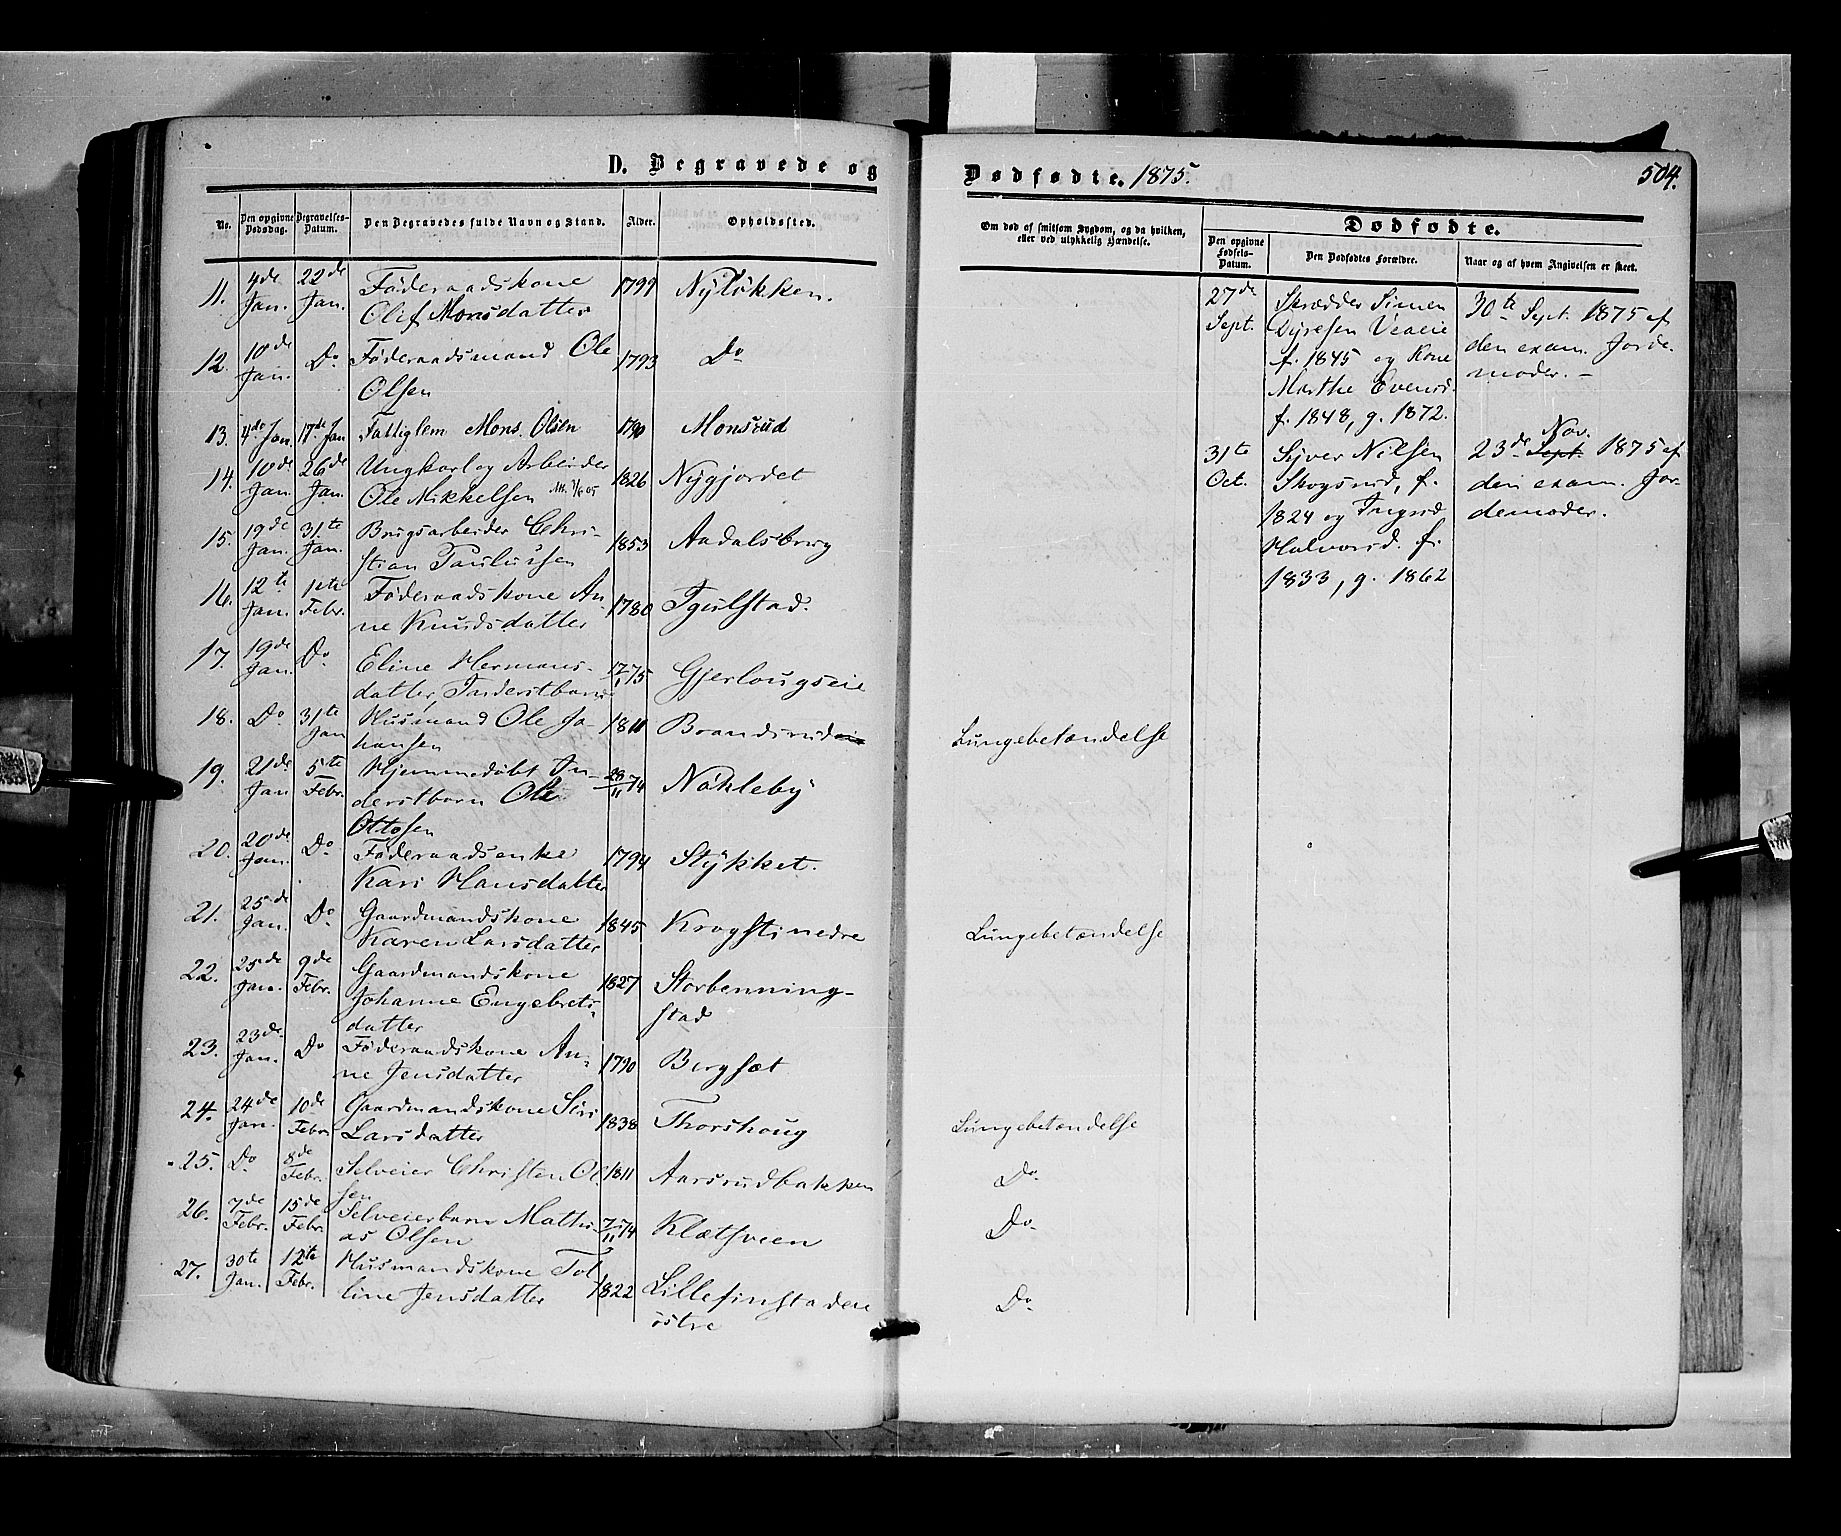 D. Begravede og
Dødfødte. 1875.
504.
No.
Den opgivne Dødsdag.
Begravelses-Datum.
Den Begravedes fulde Navn og Stand.
Alder.
Opholdssted.
Om død af smitsom Sygdom, og da hvilken, eller ved ulykkelig Hændelse.
Dødfødte.
Den opgivne Fødsels-Datum.
Den Dødfødtes Forældre.
Naar og af hvem Angivelsen er skeet.
11. 4de Jan. 22de Jan. Föderaadskone 1799 Nyløkken.
Olif Monsdatter
12. 10de Jan. Do Föderaadsmand Ole 1793 Do
Olsen
13. 4de Jan. 17de Jan Fattiglem Mons Olsen 1790 Monsrud
14. 10de Jan. 26de Jan. Ungkarl og Arbeider 1826 Nygjordet
Ole Mikkelsen
15. 19de Jan. 31te Jan. Brugsarbeider Chri- 1853 Aadalsbrug
stian Paulussen
16. 12te Jan. 1ste Febr. Föderaadskone An- 1780 Tjulstad.
ne Knudsdatter
17. 19de Jan. Do Eline Hermans- 12/1 75 Gjerlougseie
datter, Inderstbarn
18. Do 31te Jan Husmand Ole Jo- 1811 Brandsrud Lungebetændelse
hansen
19. 21de Jan 5te Febr. Hjemmedøbt In- 28/11 74 Nökleby
derstbarn Ole
Ottosen
20. 20de Jan. Do Föderaadsenke 1794 Stykket.
Kari Hansdatter
21. 25de Jan. Do Gaardmandskone 1845 Krogsti nedre Lungebetændelse
Karen Larsdatter
22. 25de Jan. 9de Febr. Gaardmandskone 1827 Storbenning-
Johanne Engebrets- stad
datter
23. 23de Jan. Do Föderaadskone An- 1790 Bergsæt
ne Jensdatter
24. 24de Jan. 10de Febr. Gaardmandskone Siri 1838 Thorshoug Lungebetændelse
Larsdatter
25. Do 8de Febr. Selveier Christen Ol- 1811 Aarsrudbakken Do
sen
26. 7de Febr. 15de Febr. Selveierbarn Mathi- 7/11 74 Klætsveen Do
as Olsen
27. 30te Jan. 12te Febr. Husmandskone Tol- 1822 Lillefinstadeie Do
line Jensdatter östre
27de Sept.
Skrædder Simen
Dyresen Veaeie
f. 1845 og Kone
Marthe Evensd.
f. 1848, g. 1872.
30te Sept. 1875 af
den exam. Jorde-
moder. –
31te Oct.
Syver Nilsen
Skogsrud, f.
1824 og Ingrid
Halvorsd. f.
1833, g. 1862
Nov.
23de Sept. 1875 af
den exam. Jor-
demoder.